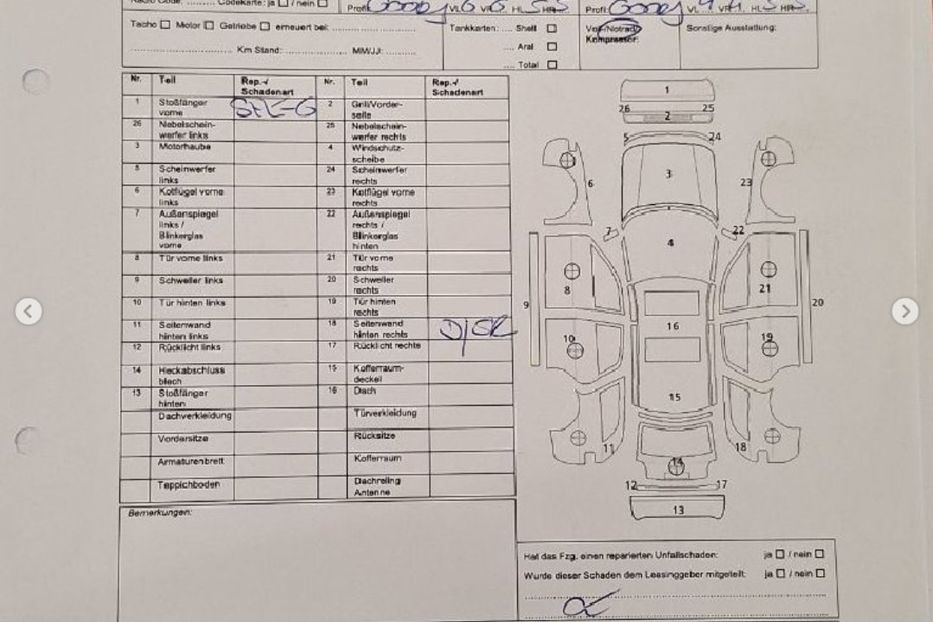 Codekarte: ja / nein
Profil VL 6 VR 6 HL 5 HR 5
Profil VL 4 VR 4 HL 5 HR 5
Tacho Motor Getriebe erneuert bei:
Tankkarten: Shell
Aral
Total
Voll-/Notrad/
Kompressor:
Sonstige Ausstattung:
Km Stand: MM/JJ:
Nr. Teil Rep.-✓ Schadenart Nr. Teil Rep.-✓ Schadenart
1 Stoßfänger vorne 2 Grill/Vorderseite
26 Nebelscheinwerfer links 25 Nebelscheinwerfer rechts
3 Motorhaube 4 Windschutzscheibe
5 Scheinwerfer links 24 Scheinwerfer rechts
6 Kotflügel vorne links 23 Kotflügel vorne rechts
7 Außenspiegel links / Blinkerglas vorne 22 Außenspiegel rechts / Blinkerglas hinten
8 Tür vorne links 21 Tür vorne rechts
9 Schweller links 20 Schweller rechts
10 Tür hinten links 19 Tür hinten rechts
11 Seitenwand hinten links 18 Seitenwand hinten rechts
12 Rücklicht links 17 Rücklicht rechts
14 Heckabschlussblech 15 Kofferraumdeckel
13 Stoßfänger hinten 16 Dach
Dachverkleidung Türverkleidung
Vordersitze Rücksitze
Armaturenbrett Kofferraum
Teppichboden Dachreling Antenne
1
26 25
2
5 24
6 3 23
7 22
4
8 21
9 20
16
10 19
15
11 18
14
12 17
13
Bemerkungen:
Hat das Fzg. einen reparierten Unfallschaden: ja / nein
Wurde dieser Schaden dem Leasinggeber mitgeteilt: ja / nein